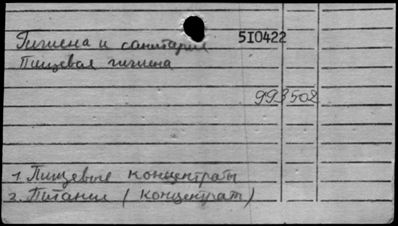 Гигиена и санитария 5I0422
Пищевая гигиена
993502
1. Пищевые концентраты
2. Питание (концентрат)